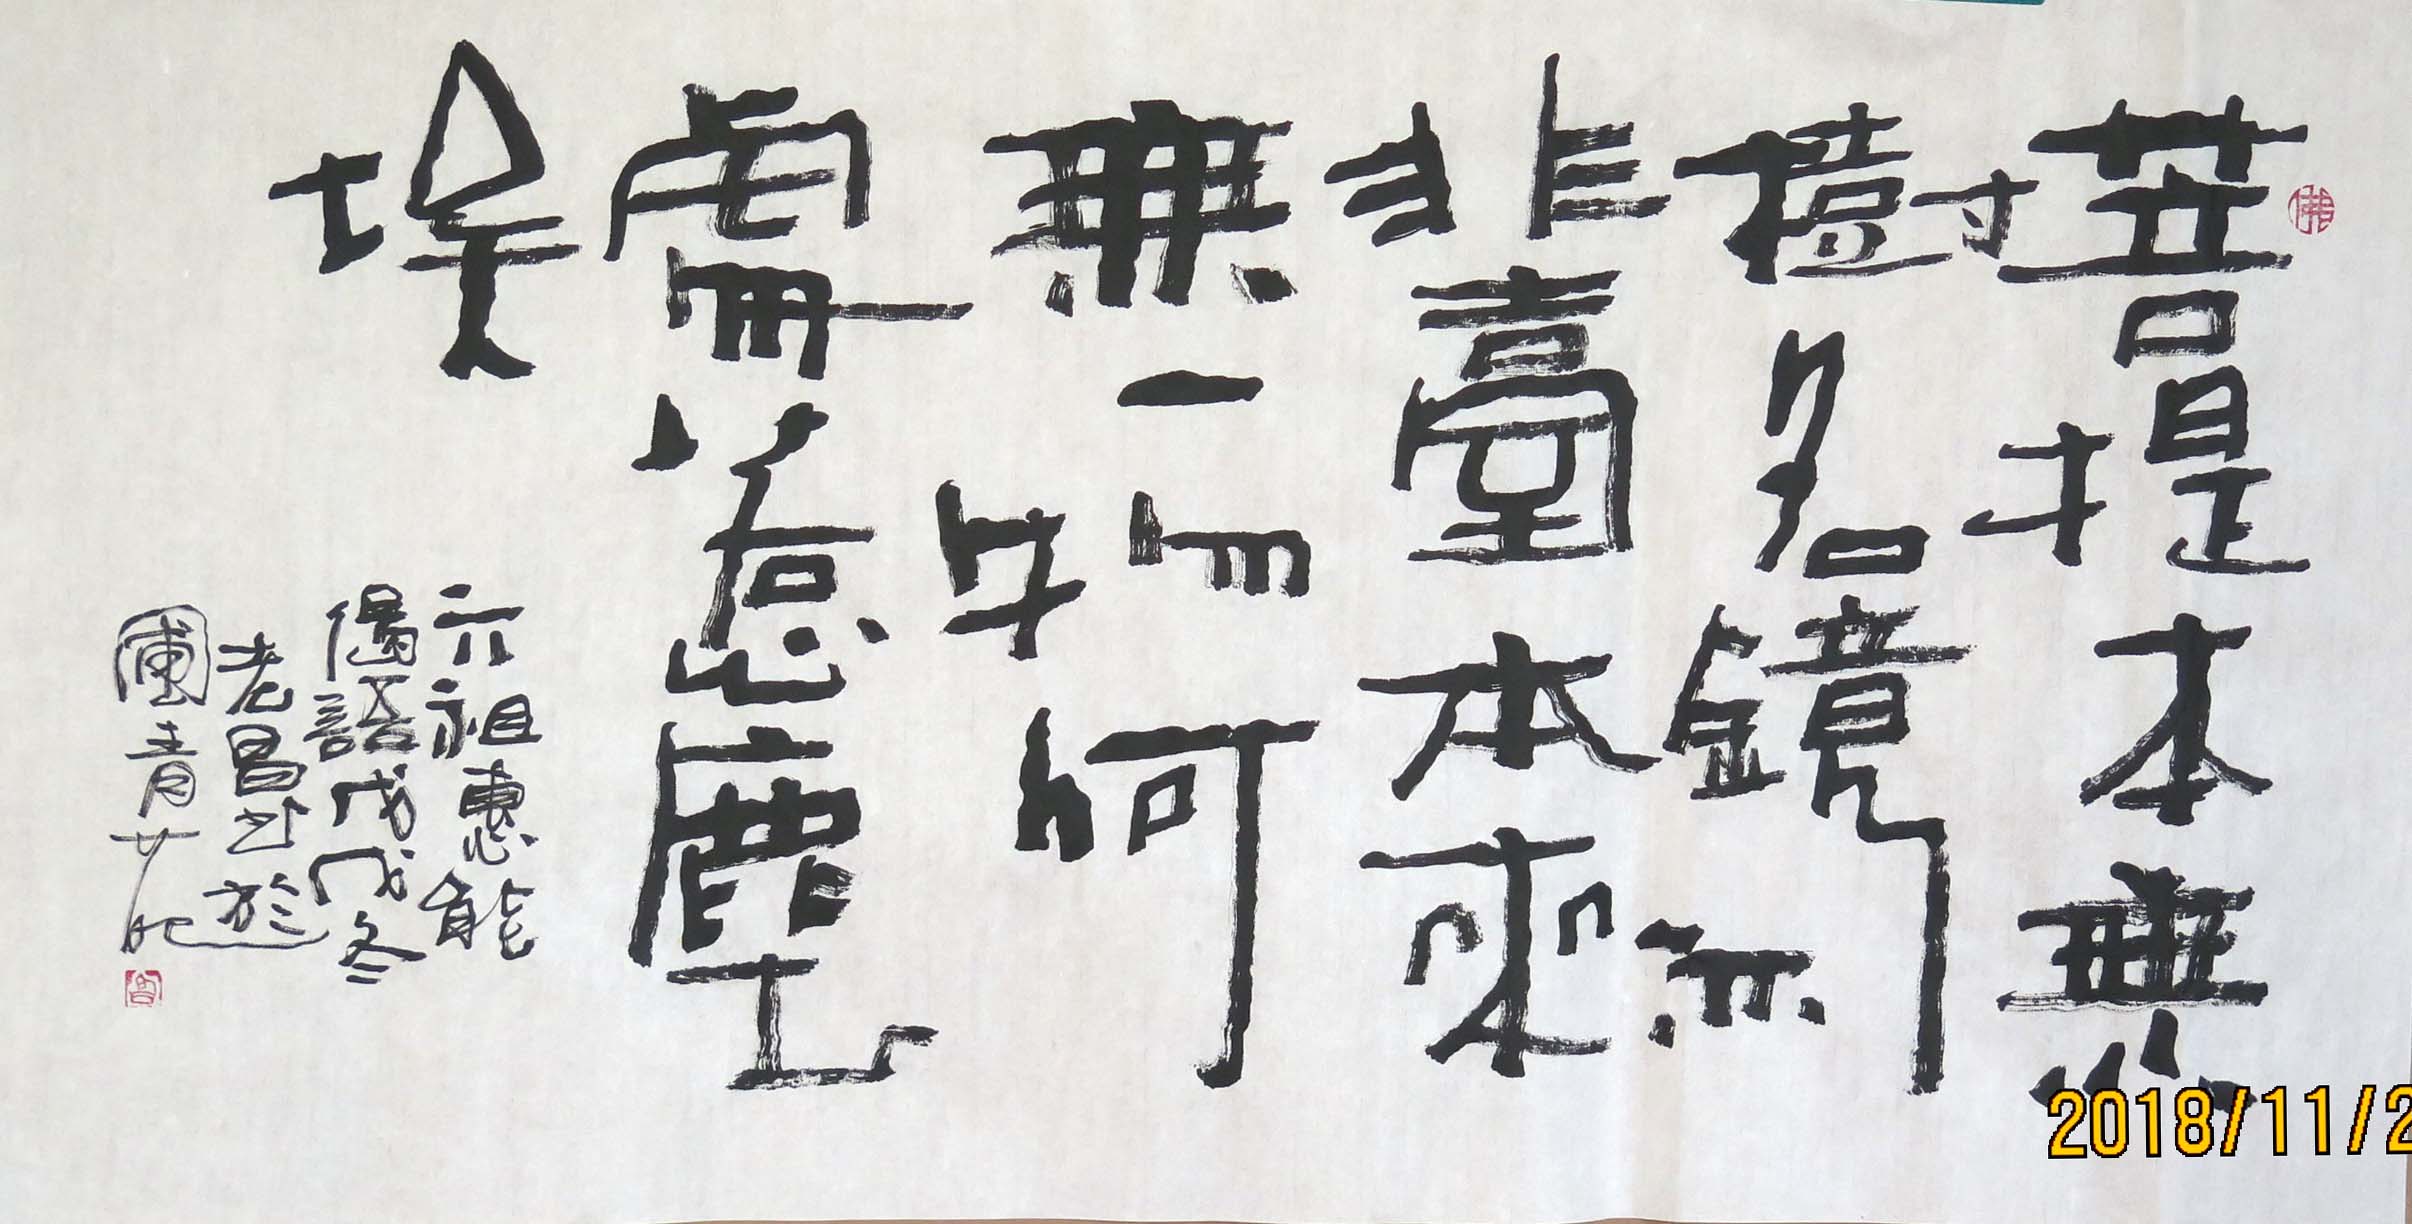 佛
菩提本無
樹明鏡亦
非臺本來
無一物何
處惹塵
埃
六祖惠能
偈語戊戌冬
老昌书於
青
2018/11/2